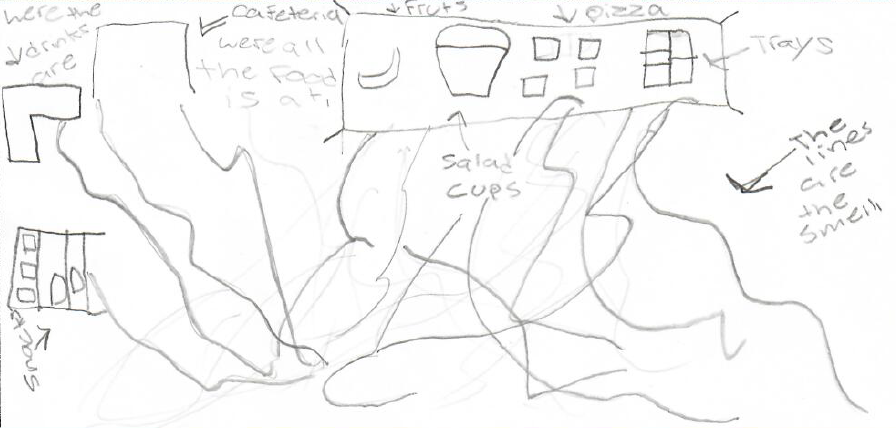 were the
drinks
are
Cafeteria
were all
the Food
is at.
Fruts
pizza
Trays
Salad
cups
The
lines
are
the
smell
snacks